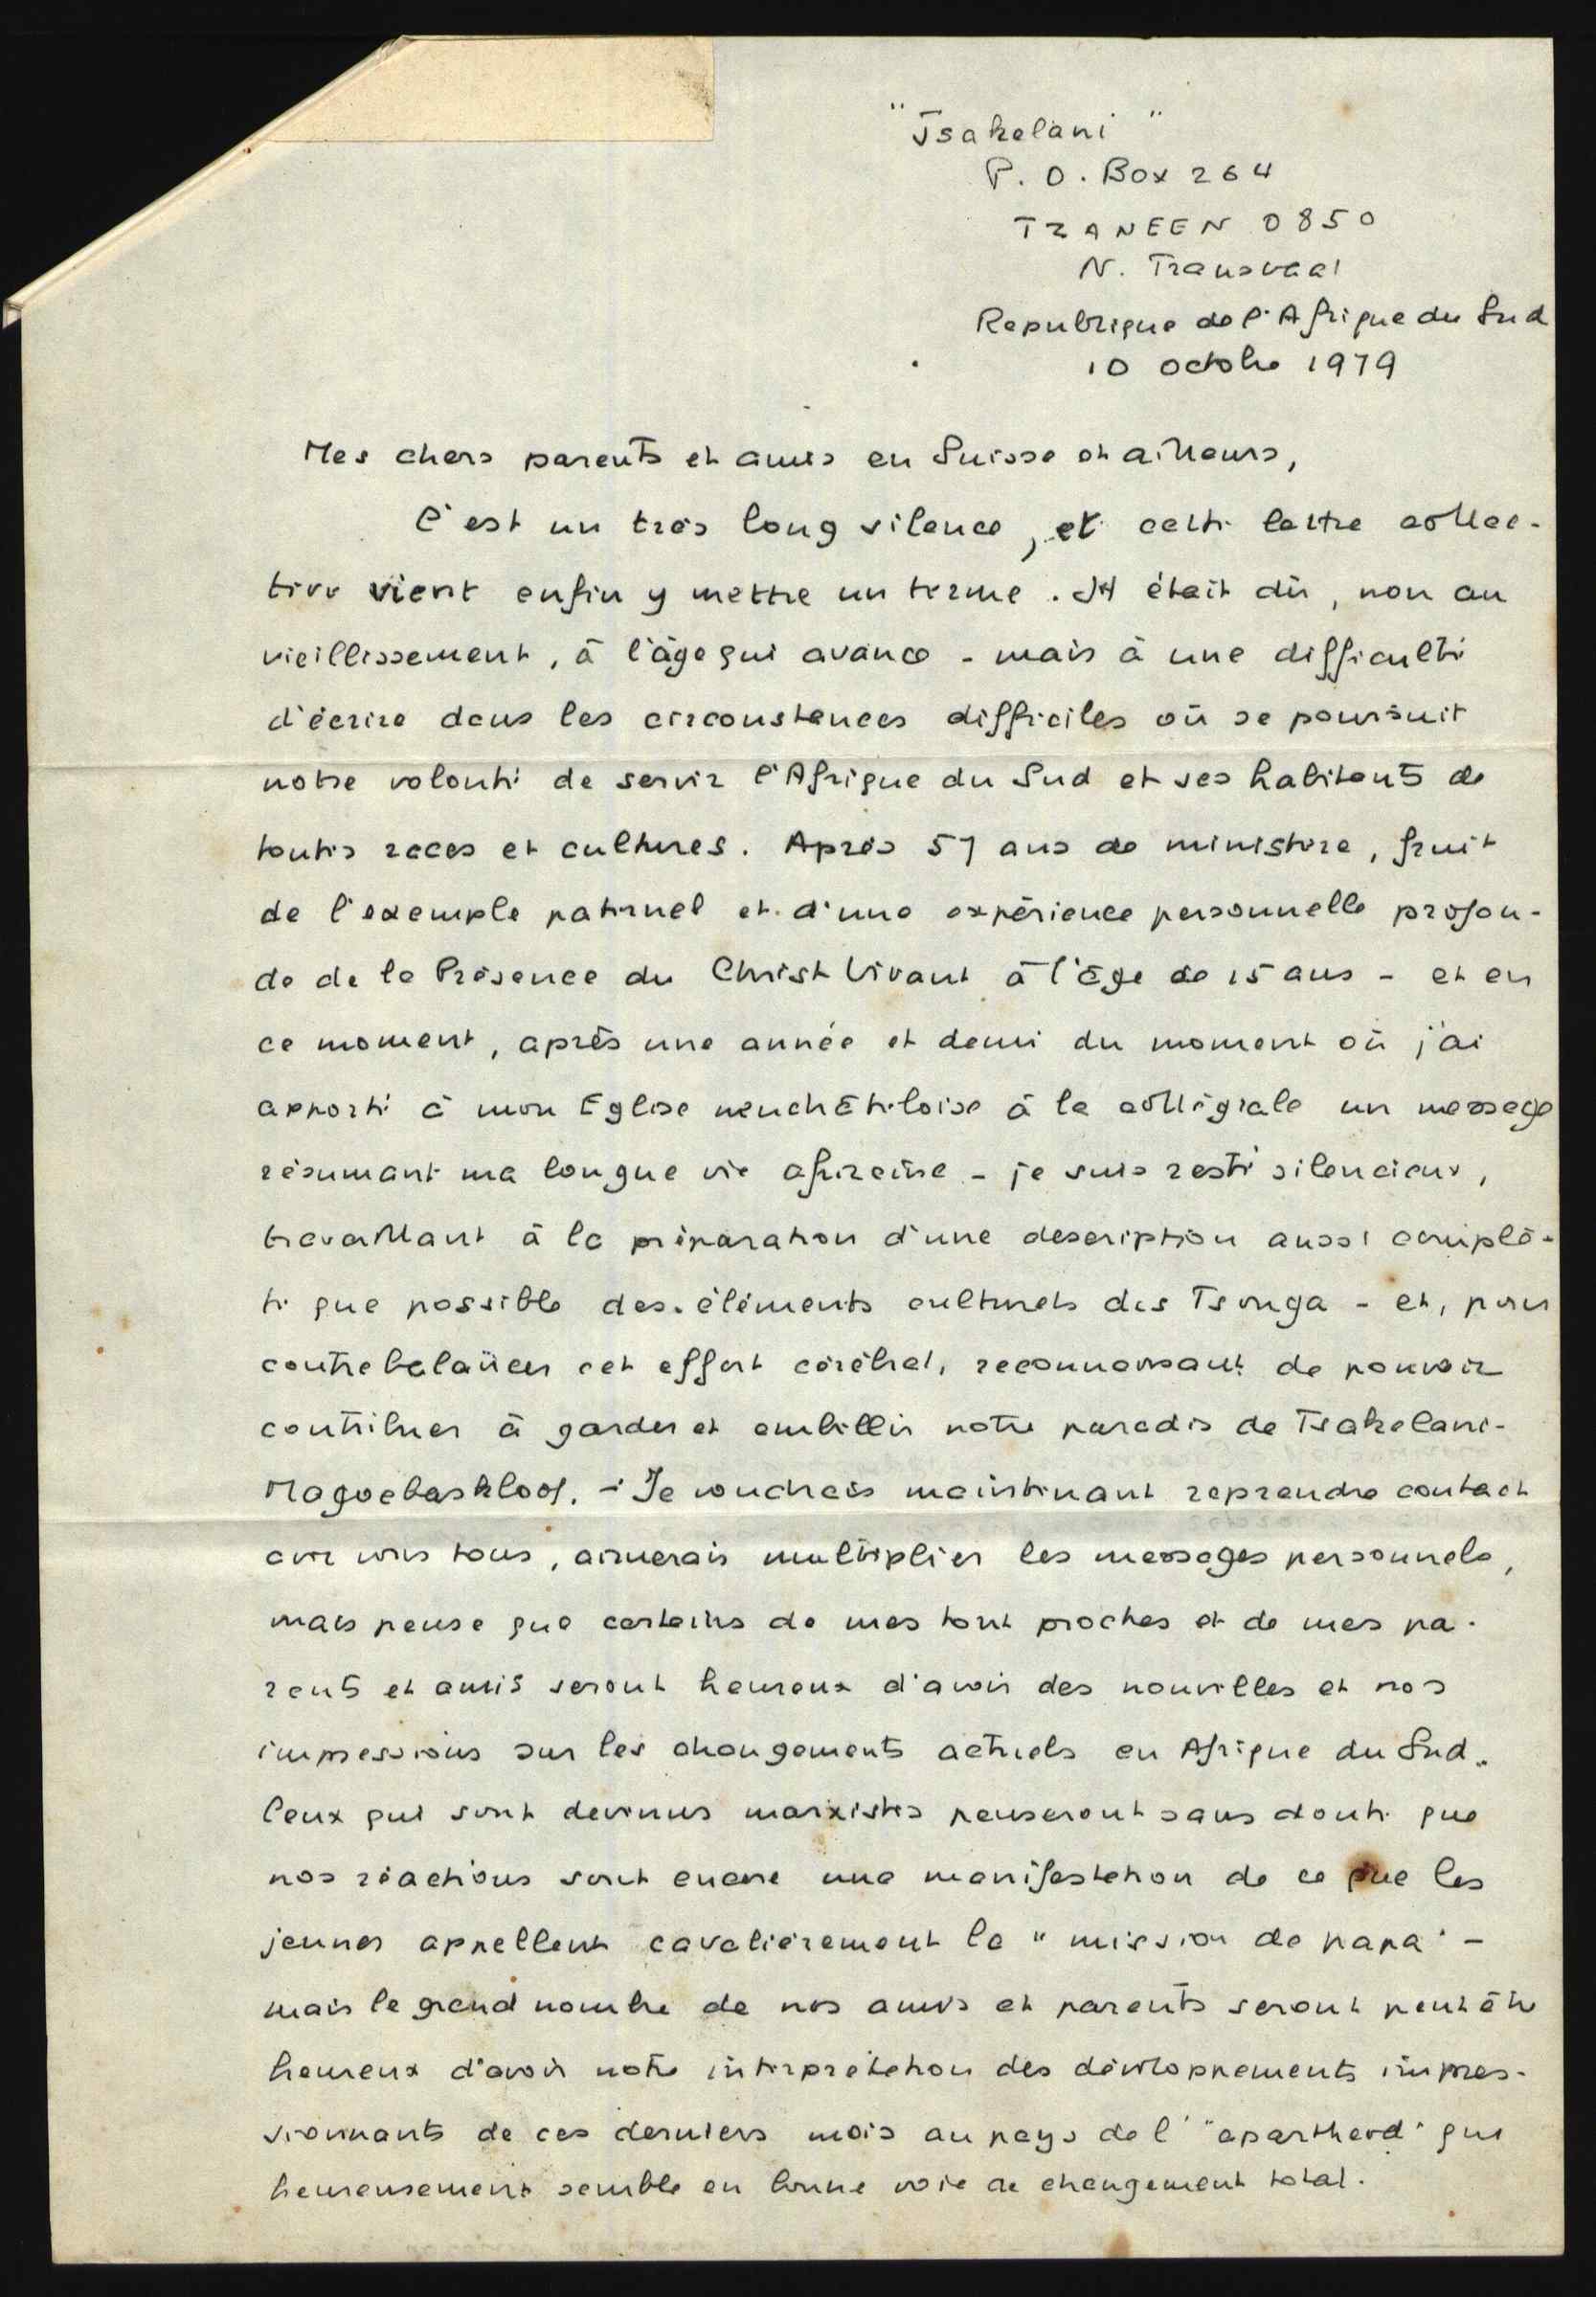 "Tsakelani"
P.O. Box 264
TZANEEN 0850
N. Transvaal
Republique de l'Afrique du Sud
10 octobre 1979
Mes chers parents et amis en Suisse et ailleurs,
C'est un très long silence, et cette lettre collec-
tive vient enfin y mettre un terme. Il était dû, non au
vieillissement, à l'âge qui avance - mais à une difficulté
d'écrire dans les circonstances difficiles où se poursuit
notre volonté de servir l'Afrique du Sud et ses habitants de
toutes races et cultures. Après 57 ans de ministère, fruit
de l'exemple paternel et d'une expérience personnelle profon-
de de la Présence du Christ Vivant à l'âge de 15 ans - et en
ce moment, après une année et demi du moment où j'ai
apporté à mon Eglise neuchâteloise à la collégiale un message
résumant ma longue vie africaine - je suis resté silencieux,
travaillant à la préparation d'une description aussi complè-
te que possible des éléments culturels des Tsonga - et, pour
contrebalancer cet effort cérébral, reconnaissant de pouvoir
contribuer à garder et embellir notre paradis de Tsakelani-
Magoebaskloof. - Je voudrais maintenant reprendre contact
avec vous tous, aimerais multiplier les messages personnels,
mais pense que certains de mes tout proches et de mes pa-
rents et amis seront heureux d'avoir des nouvelles et nos
impressions sur les changements actuels en Afrique du Sud.
Ceux qui sont devenus marxistes penseront sans doute que
nos réactions sont encore une manifestation de ce que les
jeunes appellent cavalièrement la "mission de papa" -
mais le grand nombre de nos amis et parents seront peut être
heureux d'avoir notre interprétation des développements impres-
sionnants de ces derniers mois au pays de l'"apartheid" qui
heureusement semble en bonne voie de changement total.